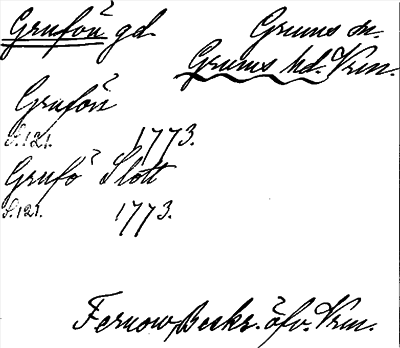 Grufön gd. Grums sn.
Grums hd. Vrm.
Grufön
S. 121. 1773.
Grufö Slott
S. 121. 1773.
Fernow, Beskr. öfv. Vrm.